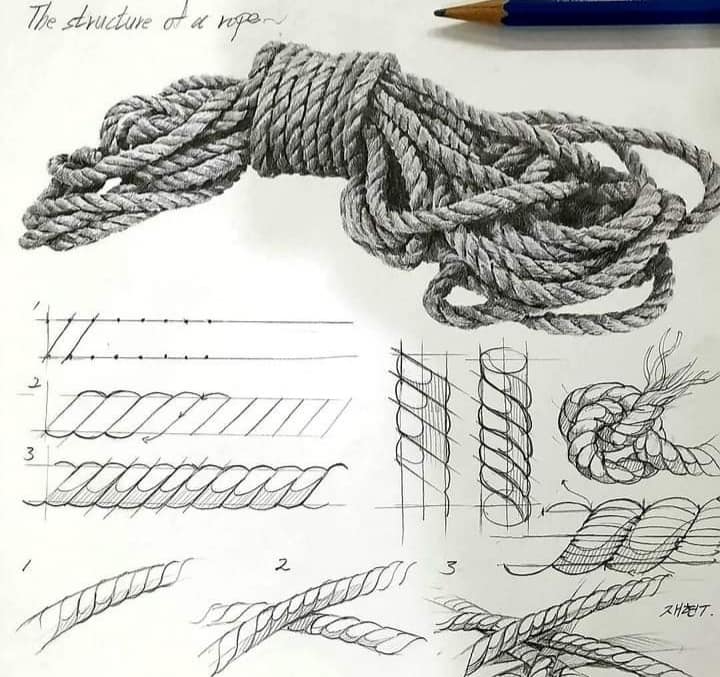 The structure of a rope
1
2
3
1 2 3